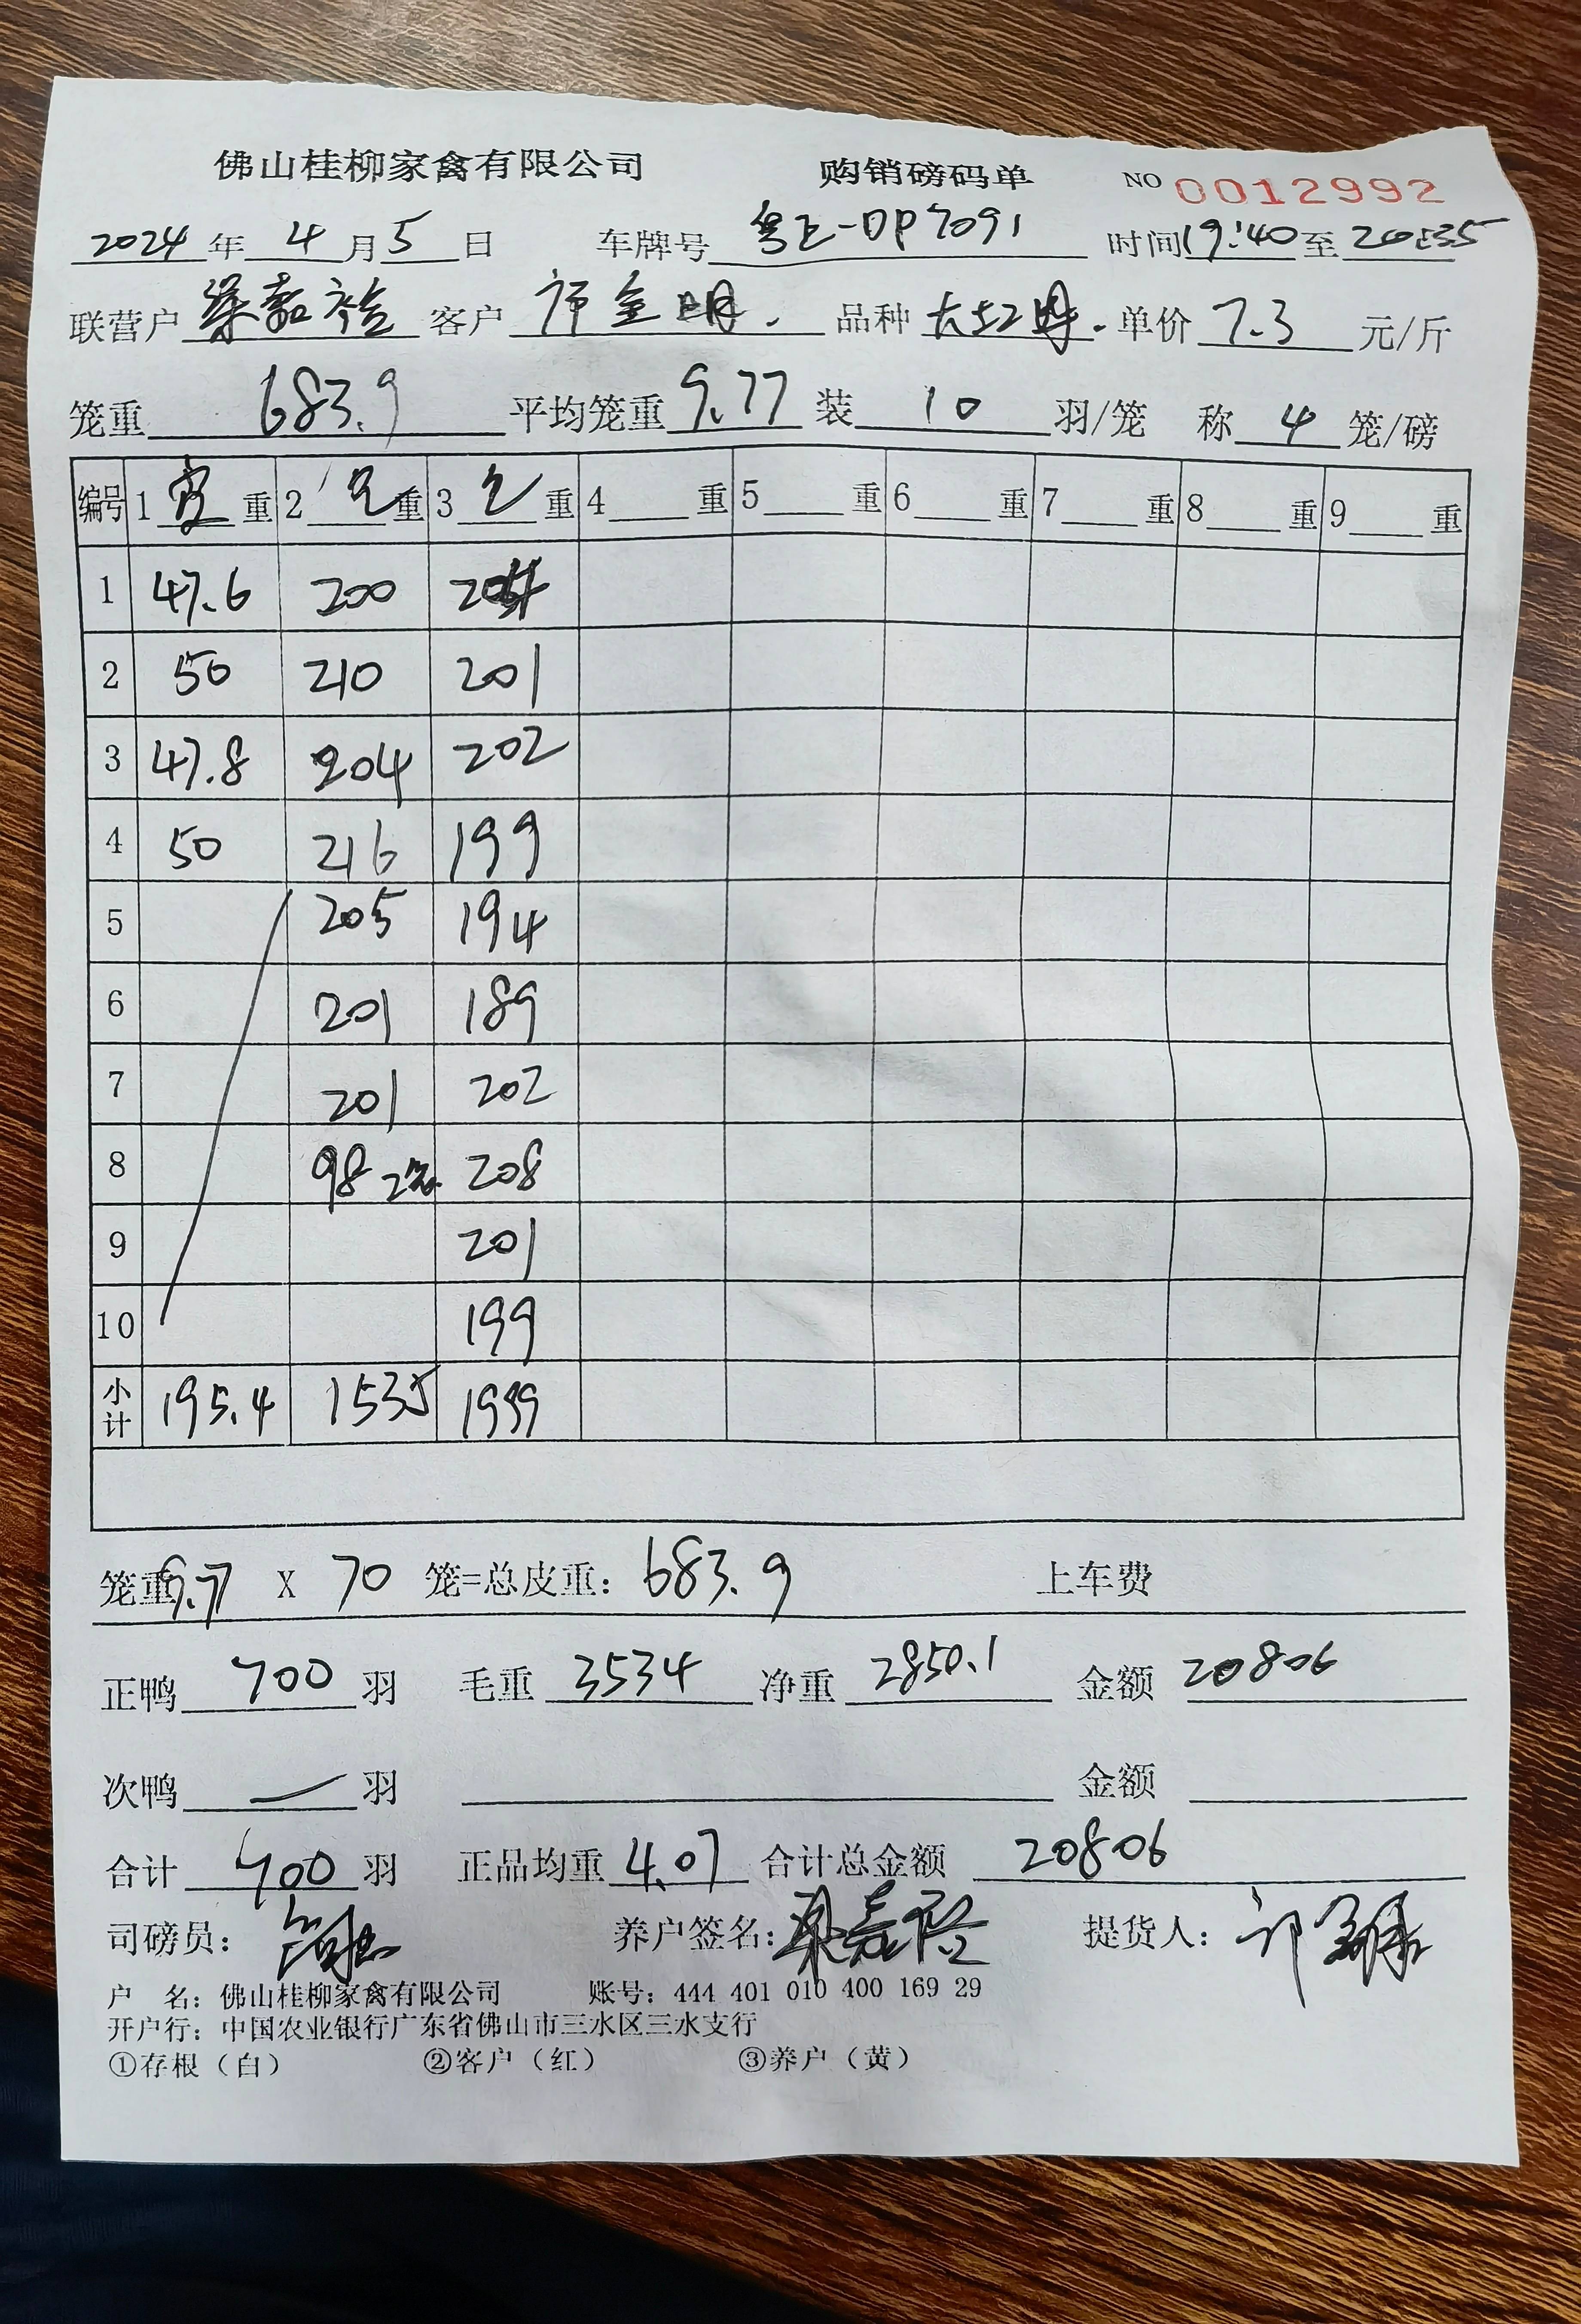 佛山桂柳家禽有限公司 购销磅码单 NO 0012992
2024 年 4 月 5 日 车牌号 粤E-DP7091 时间 19:40 至 20:35
联营户 客户 金明. 品种 大红 . 单价 7.3 元/斤
笼重 683.9 平均笼重 9.77 装 10 羽/笼 称 4 笼/磅
编号 1 皮 重 2 毛 重 3 毛 重 4 重 5 重 6 重 7 重 8 重 9 重
1 47.6 200 204
2 50 210 201
3 47.8 204 202
4 50 216 199
5 205 194
6 201 189
7 201 202
8 98 2笼 208
9 201
10 199
小计 195.4 1535 1999
笼重 9.77 X 70 笼=总皮重: 683.9 上车费
正鸭 700 羽 毛重 3534 净重 2850.1 金额 20806
次鸭 — 羽 金额
合计 700 羽 正品均重 4.07 合计总金额 20806
司磅员: 养户签名: 提货人:
户 名: 佛山桂柳家禽有限公司 账号: 444 401 010 400 169 29
开户行: 中国农业银行广东省佛山市三水区三水支行
①存根（白） ②客户（红） ③养户（黄）